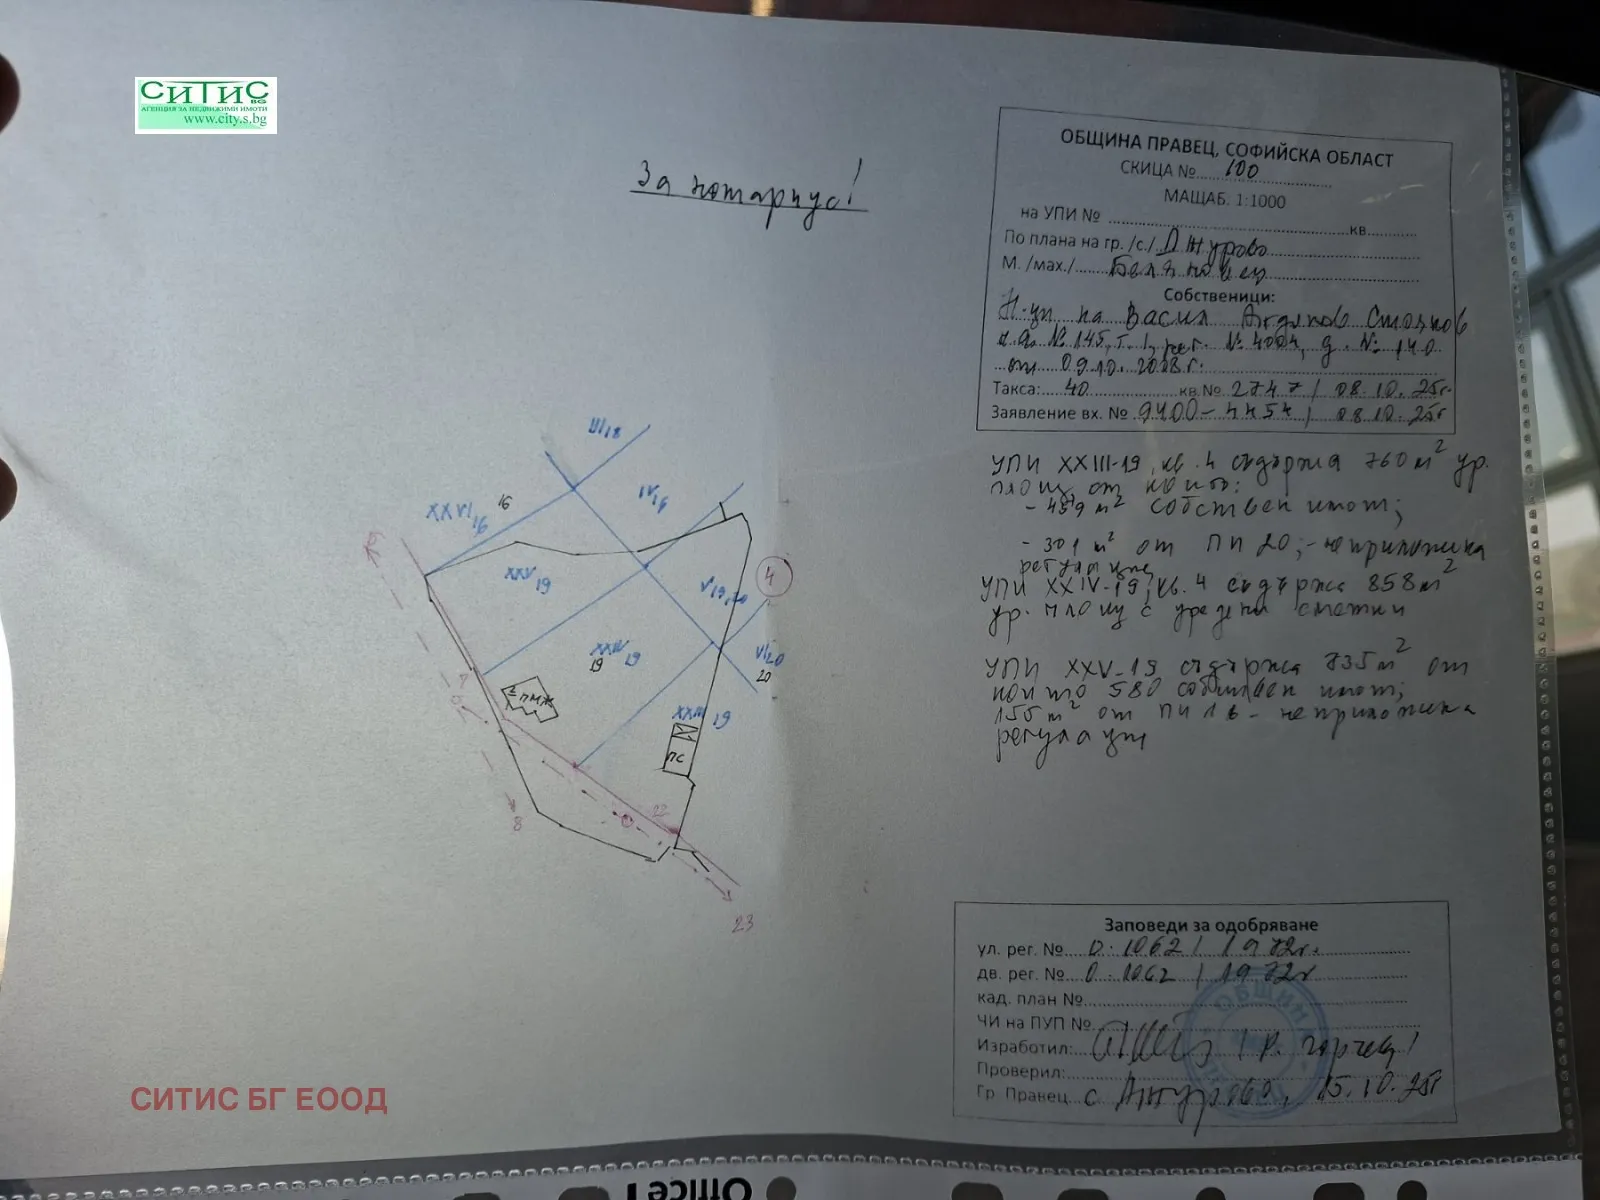 СиТиС BG
АГЕНЦИЯ ЗА НЕДВИЖИМИ ИМОТИ
www.city.s.bg
За нотариус!
ОБЩИНА ПРАВЕЦ, СОФИЙСКА ОБЛАСТ
СКИЦА № 100
МАЩАБ: 1:1000
на УПИ № кв.
По плана на гр. /с./ Джурово
М. /мах./
Собственици:
Н-ци на Васил Стоянов
н.а. № 145, т. 1, рег. № 4004, д. № 140
от 09.10.2008 г.
Такса: 40 кв.№ 2747 / 08.10.25г.
Заявление вх. № 9400-4454 / 08.10.25г
УПИ XXIII-19, кв. 4 съдържа 760 м² ур.
площ, от които:
- 459 м² собствен имот;
- 301 м² от ПИ 20; - неприложена
регулация
УПИ XXIV-19, кв. 4 съдържа 858 м²
ур. площ с уредени сметки
УПИ XXV-19 съдържа 735 м² от
които 580 собствен имот;
155 м² от ПИ 16 - неприложена
регулация
III/18
XXVI 16
16
IV 19
XXV 19
V 19,20
4
XXIV 19
19
VI 20
20
ПМЖ
XXIII 19
ПС
9
7
8
22
23
Заповеди за одобряване
ул. рег. № 0.1062 / 1972г.
дв. рег. № 0.1062 / 1972г
кад. план №
ЧИ на ПУП №
Изработил:
Проверил:
Гр. Правец с. Джурово, 15.10.25г
ОБЩИНА
СИТИС БГ ЕООД
Office 1